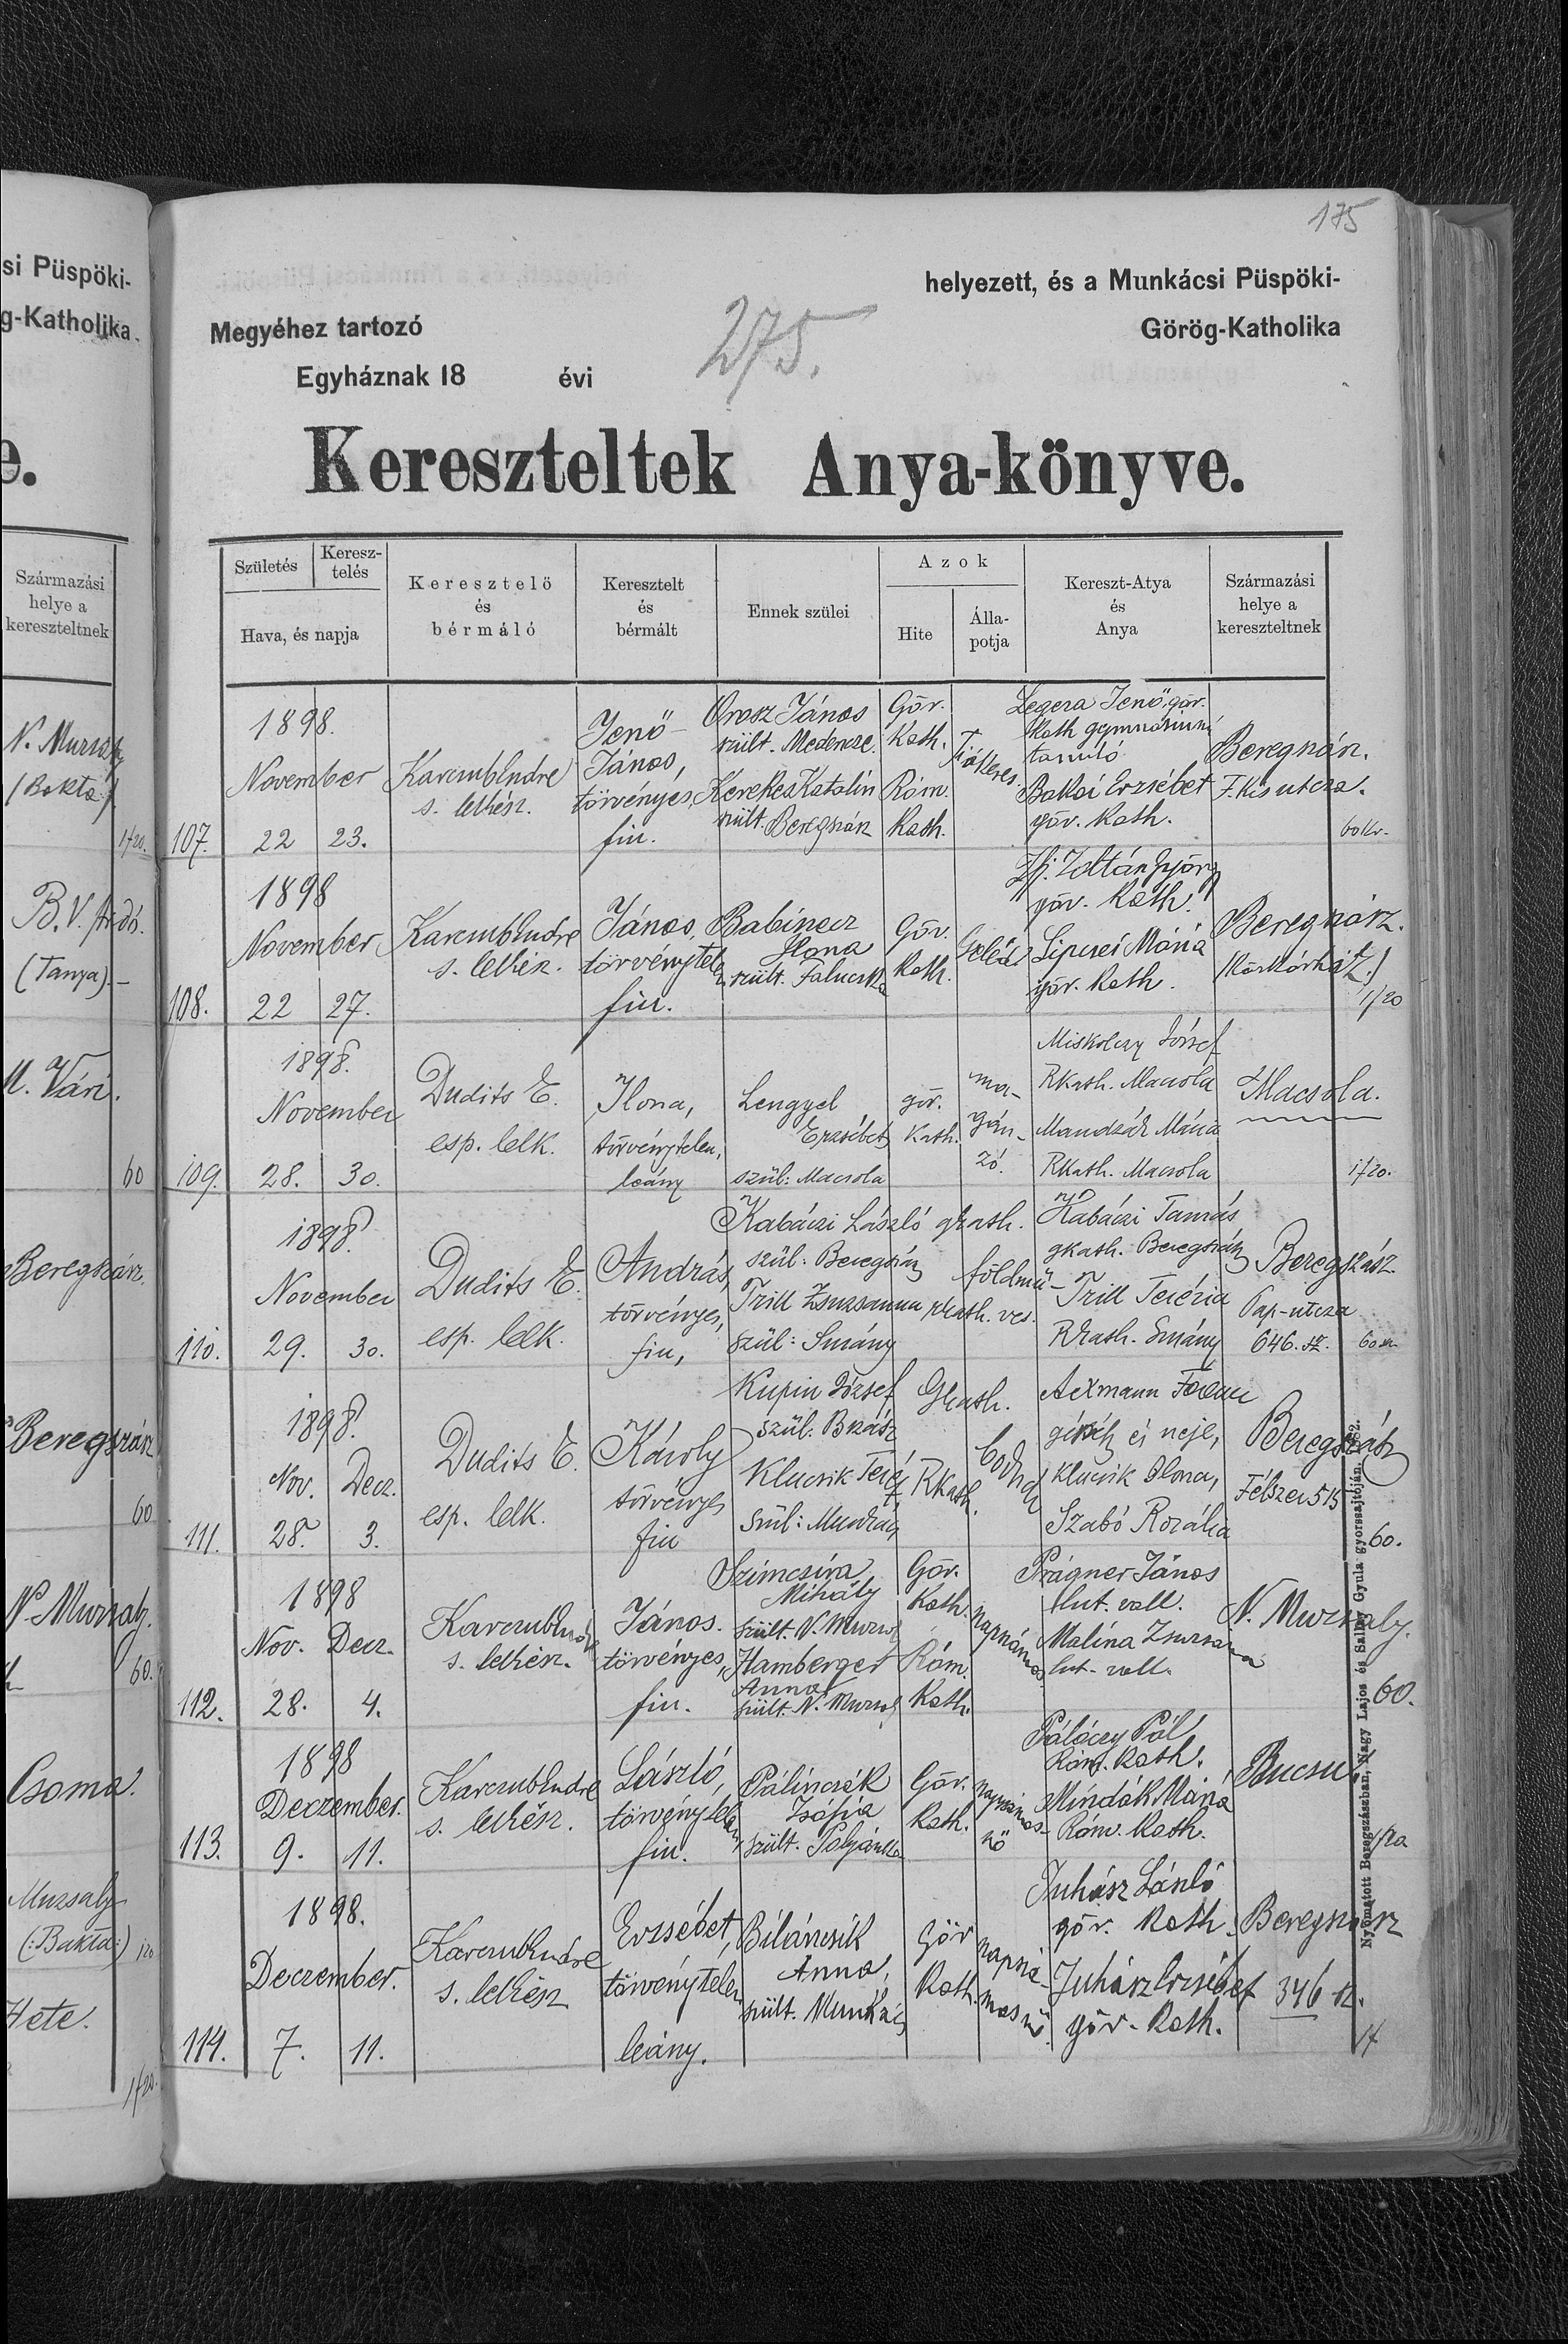 175
275.
helyezett, és a Munkácsi Püspöki-
Megyéhez tartozó
Görög-Katholika
Egyháznak 18 évi
Kereszteltek Anya-könyve.
Születés
Keresz-
telés
Hava, és napja
Keresztelö
és
bérmáló
Keresztelt
és
bérmált
Ennek szülei
Azok
Hite
Álla-
potja
Kereszt-Atya
és
Anya
Származási
helye a
kereszteltnek
si Püspöki-
g-Katholika.
e.
Származási
helye a
kereszteltnek
(Bakta)
1f20.
(Tanya).-
M. Vári.
60
Beregszász
Beregszász
60
N. Muzsaly.
60.
Csoma.
Muzsaly
(:Bakta:)
Hete.
1f20.
107.
1898.
November
22 23.
s. lelkész.
Jenő
János,
törvényes,
fiu.
Orosz János
szült. Medencze.
Kerekes Katalin
szült. Beregszász
Gör.
Kath.
Róm.
Kath.
Legeza Jenő gör.
kath gymnásiumi
tanuló
Baksi Erzsébet
gör. kath.
Beregszász.
F. Kis utcza.
60 kr.
108.
1898
November
22 27.
s. lelkész.
János,
törvénytelen
fiu.
Babinecz
Ilona
szült. Falucska
Gör.
Kath.
Cseléd
Ifj. Zoltán György
gör. Kath.
Lipcsei Mária
gör. kath.
Beregszász.
(Közkórház.)
1f20
109.
1898.
November
28. 30.
Dudits E.
esp. lelk.
Ilona,
törvénytelen,
leány
Lengyel
Erzsébet
szül: Macsola
gör.
Kath.
ma-
gán-
zó.
Miskolczy József
Rkath. Macsola
Mandzák Mária
Rkath. Macsola
Macsola.
1f20.
110.
1898.
November
29. 30.
Dudits E.
esp. lelk.
András,
törvényes,
fiu,
Kabáczi László
szül: Beregszász
Trill Zsuzsanna
szül: Surány
gkath.
rkath.
földmű-
ves.
Kabáczi Tamás
gkath. Beregszász
Trill Terézia
Rkath. Surány
Beregszász
Pap-utcza
646. sz.
60 kr
111.
1898.
Nov. Decz.
28. 3.
Dudits E.
esp. lelk.
Károly
törvényes
fiu
Kupin József
Klucsik Teréz
Gkath.
Rkath.
és neje,
Klucsik Ilona,
Szabó Rozália
Beregszász
Félszer 515
60.
112.
1898
Nov. Decz.
28. 4.
s. lelkész.
János.
törvényes,
fiu.
Szimcsina
Mihály
szült. N. Muzsaly
Hamberger
Anna
szült. N. Muzsaly
Gör.
Kath.
Róm.
Kath.
napszámos
Prágner János
lut. vall.
Malina Zsuzsanna
lut. vall.
N. Muzsaly.
60.
113.
1898
Deczember.
9. 11.
s. lelkész.
László,
törvénytelen,
fiu.
Pálincsák
Zsófia
szült. Polyánka
Gör.
Kath.
napszámos-
nő
Pálóczy Pál
Róm. kath.
Mindák Mária
Róm. Kath.
Bucsu
1f20
114.
1898.
Deczember.
7. 11.
s. lelkész
Erzsébet,
törvénytelen
leány.
Biláncsik
Anna,
szült. Munkács
Gör
Kath.
napszá-
mosnő.
Juhász László
gör. Kath.
Juhász Erzsébet
gör. Kath.
Beregszász
346 sz.
1f
Nyomatott Beregszászban, Nagy Lajos és Gyula gyorssajtóján.